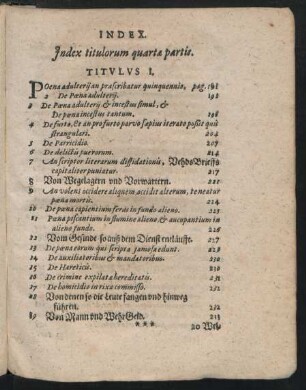 INDEX.
Index titulorum quartæ partis.
TITVLVS I.
POena adulterij an præscribatur quinquennio, pag. 191
2 De Pœna adulterij. 192
3 De Pœna adulterij & incestus simul, &
De pœna incestus tantum. 198
4 De furto, Et an profurto parvo sæpius iterato possit quis
strangulari. 204
5 De Parricidio. 207
6 De delictis puerorum. 214
7 An scriptor literarum diffidationis, Vehds Brieffs
capitaliter puniatur. 217
8 Von Wegelagern und Vorwartern.
9 An volens occidere aliquem accidit alterum, teneatur
pœna mortis. 214
10 De pœna capientium feras in fundo alieno.
11 Pœna piscantium in flumine alieno & aucupantium in
alieno fundo.
12 Vom Gesinde so auß dem Dienst entläufft. 227
13 De pœna eorum qui scripta famosa edunt.
14 De auxiliatoribus & mandatoribus.
15 De Hæreticis.
16 De crimine expilatæ hereditatis.
17 De homicidio in rixa commisso.
18 Von denen so die leute fangen und hinweg
führen. 252
19 Von Mann und WehrGeld.
***
20 Wel-